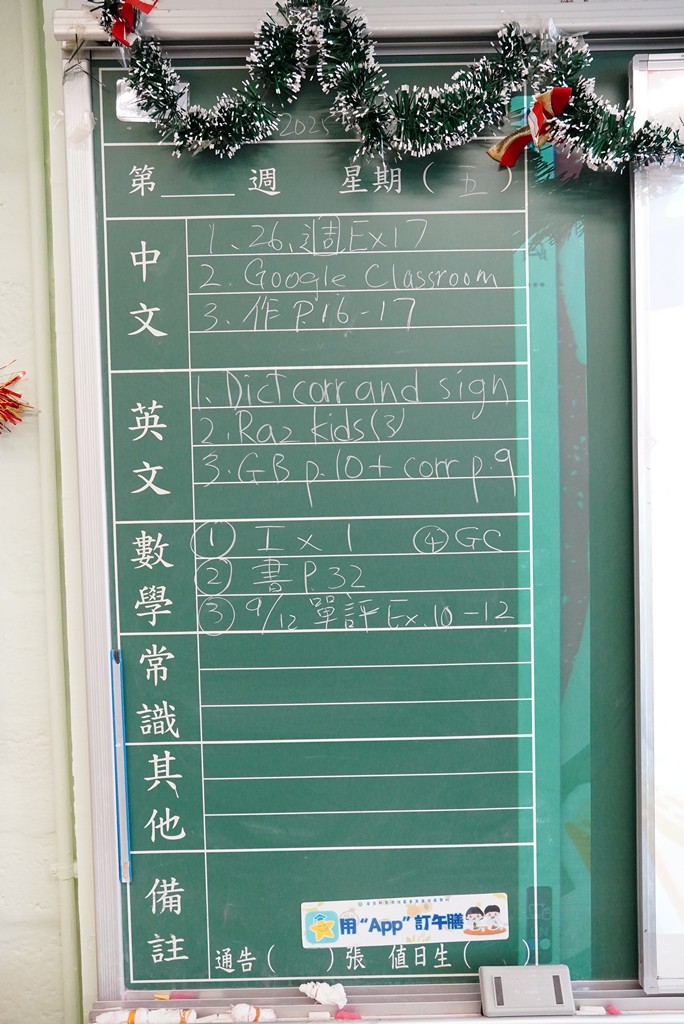 2025
第____週 星期（五）
中文
1、26、週 Ex17
2. Google Classroom
3. 作 P.16-17
英文
1. Dict corr and sign
2. Raz kids (3)
3. GB p.10 + corr p.9
數學
① I x 1 ④ GC
② 書 P.32
③ 9/12 單評 Ex.10-12
常識
其他
備註
用 "App" 訂午膳
通告（ ）張 值日生（ ）